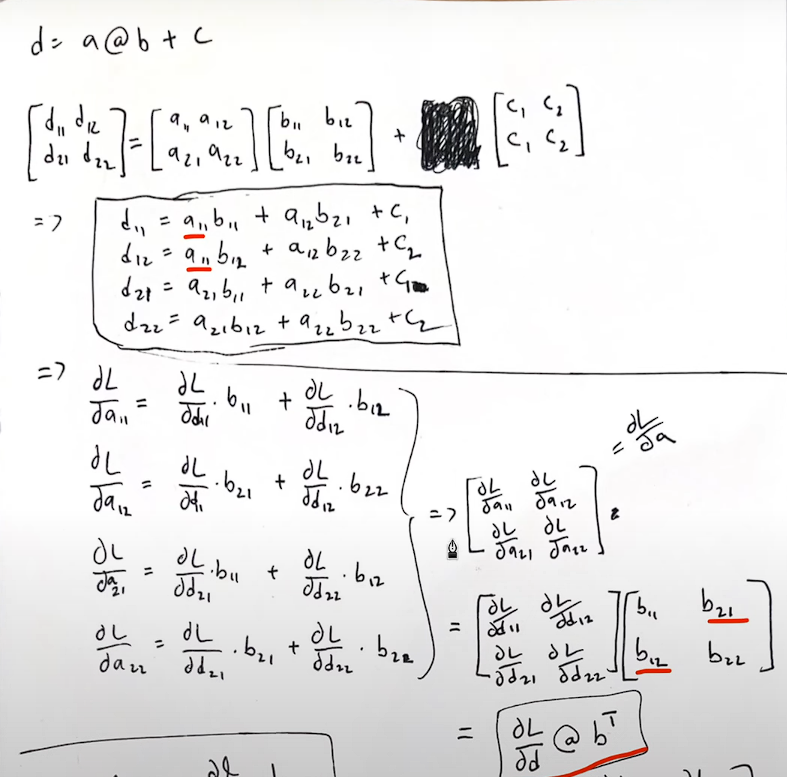 d = a @ b + c
[d11 d12; d21 d22] = [a11 a12; a21 a22] [b11 b12; b21 b22] + [c1 c2; c1 c2]
=> d11 = a11 b11 + a12 b21 + c1
d12 = a11 b12 + a12 b22 + c2
d21 = a21 b11 + a22 b21 + c1
d22 = a21 b12 + a22 b22 + c2
=> ∂L/∂a11 = ∂L/∂d11 · b11 + ∂L/∂d12 · b12
∂L/∂a12 = ∂L/∂d11 · b21 + ∂L/∂d12 · b22
∂L/∂a21 = ∂L/∂d21 · b11 + ∂L/∂d22 · b12
∂L/∂a22 = ∂L/∂d21 · b21 + ∂L/∂d22 · b22
= ∂L/∂a
=> [∂L/∂a11 ∂L/∂a12; ∂L/∂a21 ∂L/∂a22] =
= [∂L/∂d11 ∂L/∂d12; ∂L/∂d21 ∂L/∂d22] [b11 b21; b12 b22]
= ∂L/∂d @ b^T